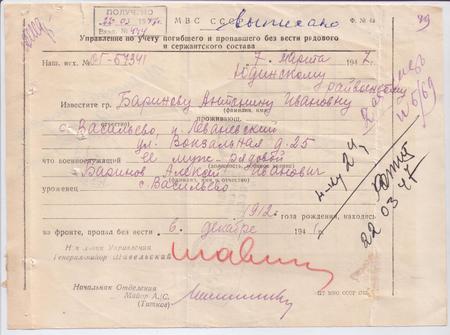 ПОЛУЧЕНО
МВС СССР
Выписано
Ф. № 4а
Управление по учету погибшего и пропавшего без вести рядового
и сержантского состава
Наш. исх. №
7 марта 1947.
Юдинскому
райвоенкому
Известите гр. Баринову Антонину Ивановну
(фамилия, имя, отчество)
проживающ.
с. Васильево, п. Леваневский
ул. Вокзальная д. 25
что военнослужащий ее муж - рядовой
Баринов Алексей Иванович
(фамилия, имя и отчество)
уроженец с. Васильево
1912 года рождения, находясь
на фронте, пропал без вести в декабре 194
22 03 47
Начальник Управления
Генерал-майор Шавельский
Начальник Отделения
Майор А/С.
(Титков)